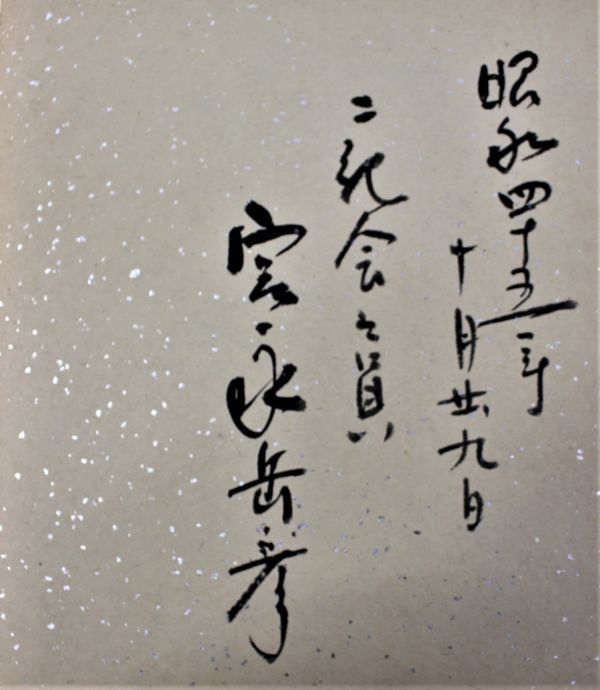 昭和四十五年
十月廿九日
二紀会々員
宮永岳彦